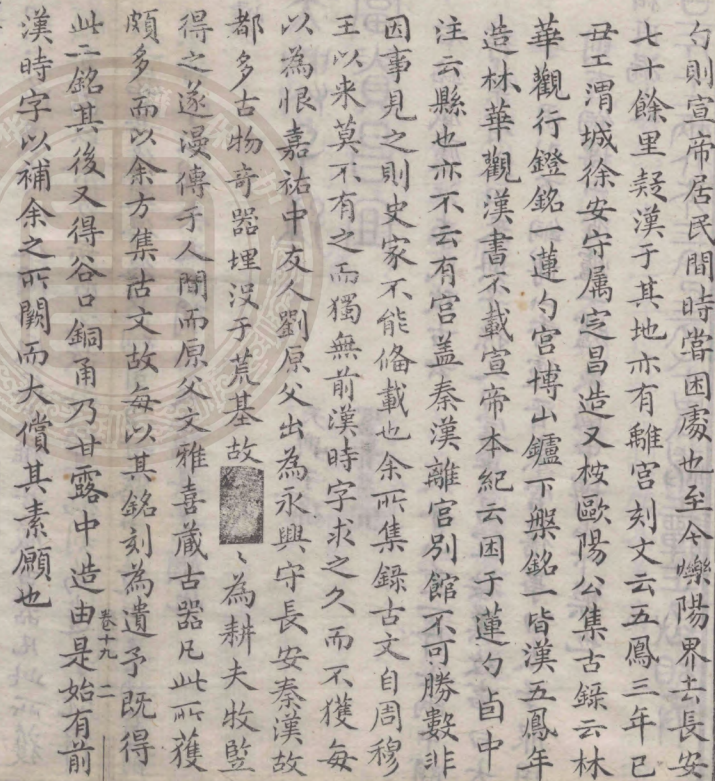 勺則宣帝居民間時嘗困處也至今櫟陽界去長安
七十餘里疑漢于其地亦有離宮刻文云五鳳三年已
丑工渭城徐安守属㝎昌造又桉歐陽公集古録云林
華觀行鐙銘一蓮勺宮博山鑪下槃銘一皆漢五鳳年
造林華觀漢書不載宣帝本紀云困于蓮勺卤中
注云縣也亦不云有宮盖秦漢離宮別館不可勝數非
因事見之則史家不能俻載也余所集録古文自周穆
王以来莫不有之而獨無前漢時字求之久而不獲每
以為恨嘉祐中友人劉原父出為永興守長安秦漢故
都多古物奇器埋没于荒基故 〻為耕夫牧豎
得之遂漫傳于人間而原父文雅喜蔵古器凡此所獲
頗多而以余方集古文故每以其銘刻為遺予既得
此二銘其後又得谷口銅甬乃甘露中造由是始有前
漢時字以補余之所闕而大償其素願也
卷十九 二